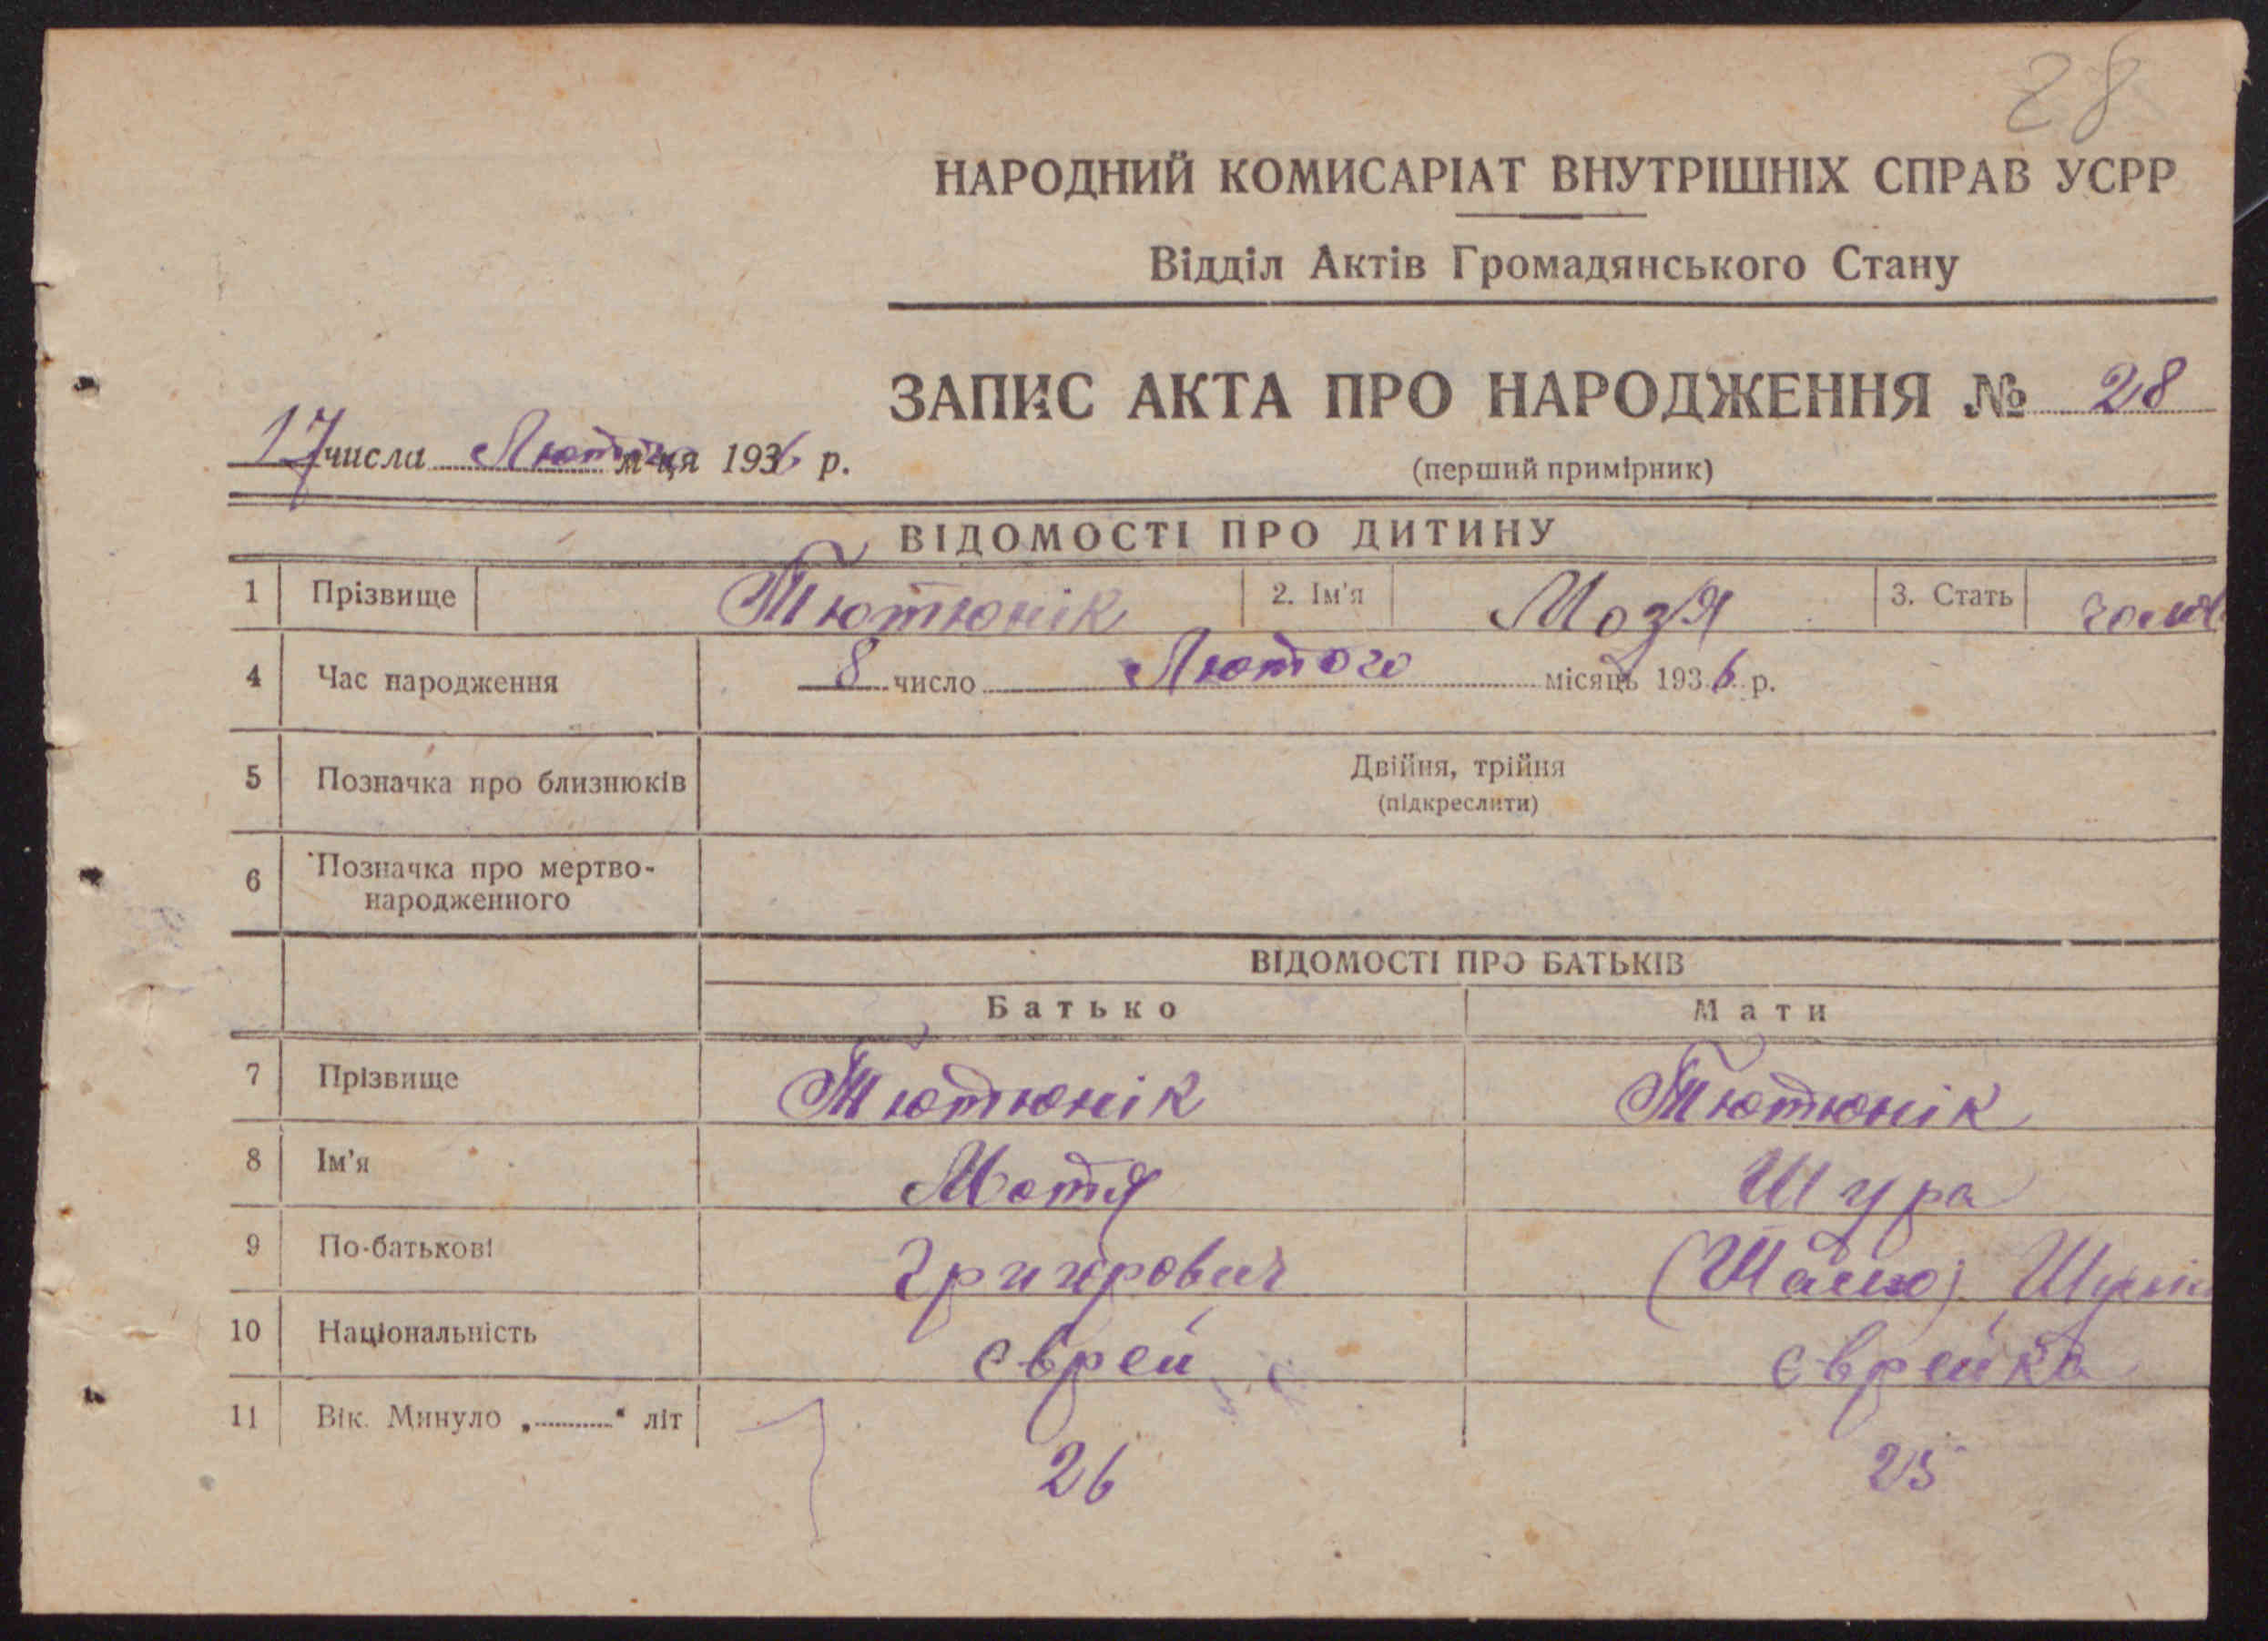 28
НАРОДНИЙ КОМИСАРІАТ ВНУТРІШНІХ СПРАВ УСРР
Відділ Актів Громадянського Стану
ЗАПИС АКТА ПРО НАРОДЖЕННЯ № 28
17 числа Лютого м-ця 1936 р.
(перший примірник)
ВІДОМОСТІ ПРО ДИТИНУ
1 Прізвище Тютюнік 2. Ім'я Мозя 3. Стать
4 Час народження 8 число Лютого місяць 1936 р.
5 Позначка про близнюків Двійня, трійня
(підкреслити)
6 Позначка про мертво-
народженного
ВІДОМОСТІ ПРО БАТЬКІВ
Батько Мати
7 Прізвище Тютюнік Тютюнік
8 Ім'я Мотя Шура
9 По-батькові Григорович
10 Національність єврей єврейка
11 Вік. Минуло „ “ літ 26 25